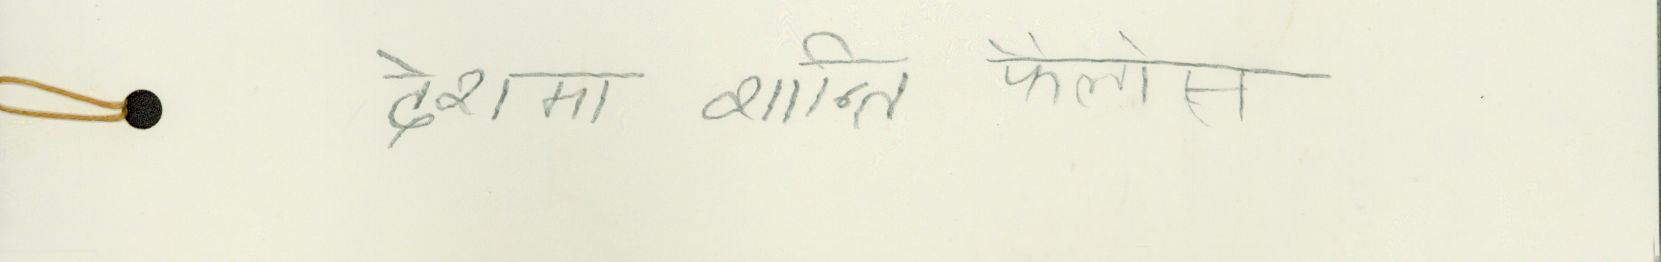 देशमा शान्ति फैलोस